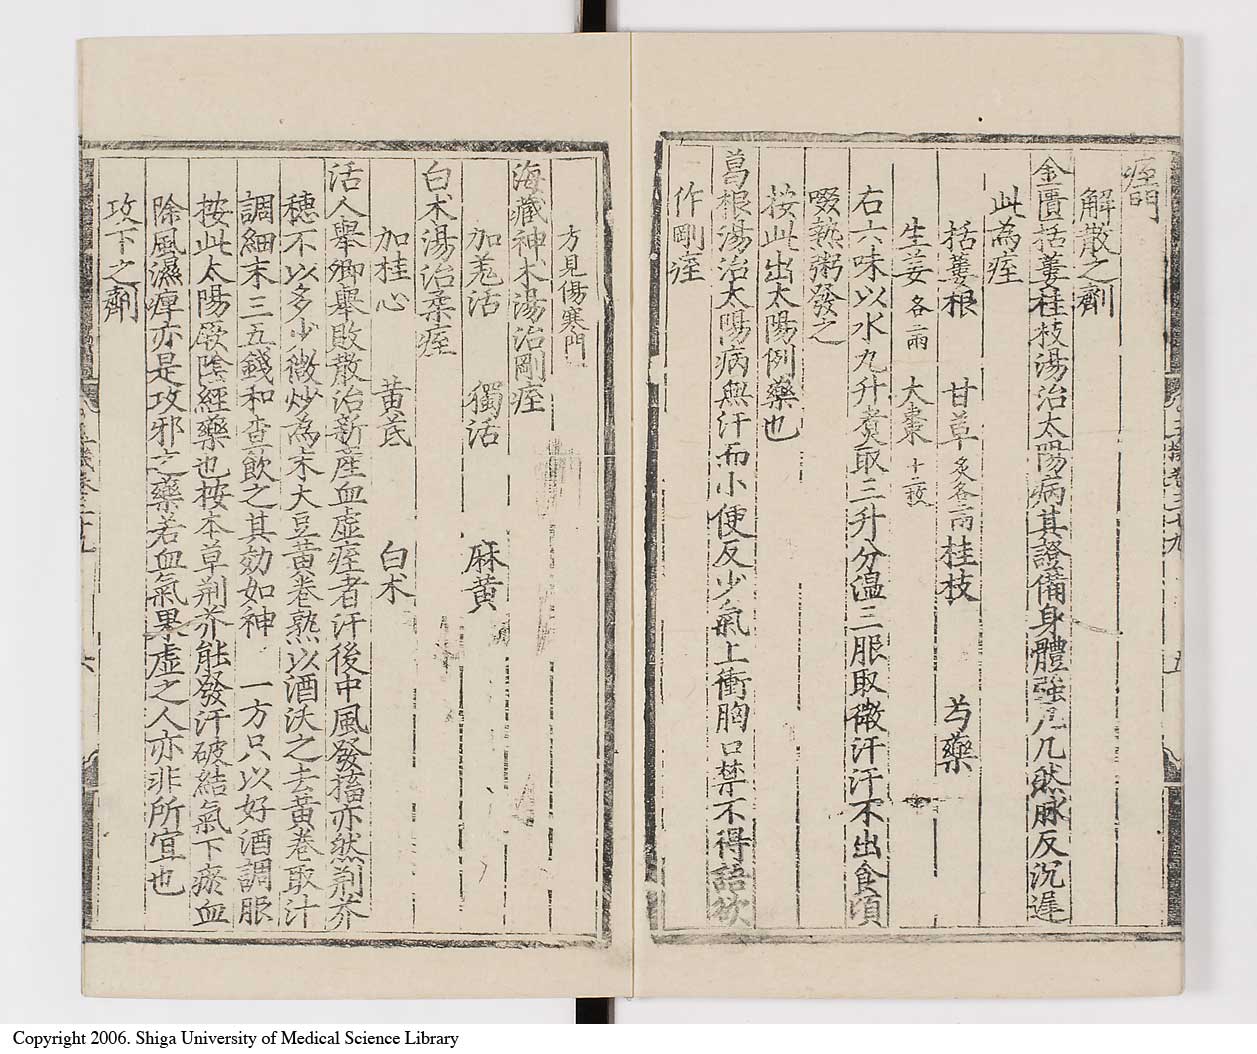 痓門
解散之劑
金匱括蔞桂枝湯治太陽病其證備身體強几几然脉反沉遲
此為痓
括蔞根 甘草炙各二兩 桂枝 芍藥
生姜各二兩 大棗十二枚
右六味以水九升煑取三升分温三服取微汗汗不出食頃
啜熱粥發之
按此出太陽例藥也
葛根湯治太陽病無汗而小便反少氣上衝胸口禁不得語欲
作剛痓
方見傷寒門
海藏神术湯治剛痓
加羗活 獨活 麻黄
白术湯治柔痓
加桂心 黄芪 白术
活人舉卿舉敗散治新産血虚痓者汗後中風發搐亦然荆芥
穗不以多少微炒為末大豆黄卷熟以酒沃之去黄卷取汁
調細末三五錢和查飲之其効如神 一方只以好酒調服
按此太陽厥陰經藥也按本草荆芥能發汗破結氣下瘀血
除風濕痺亦是攻邪之藥若血氣果虚之人亦非所宜也
攻下之劑
Copyright 2006. Shiga University of Medical Science Library